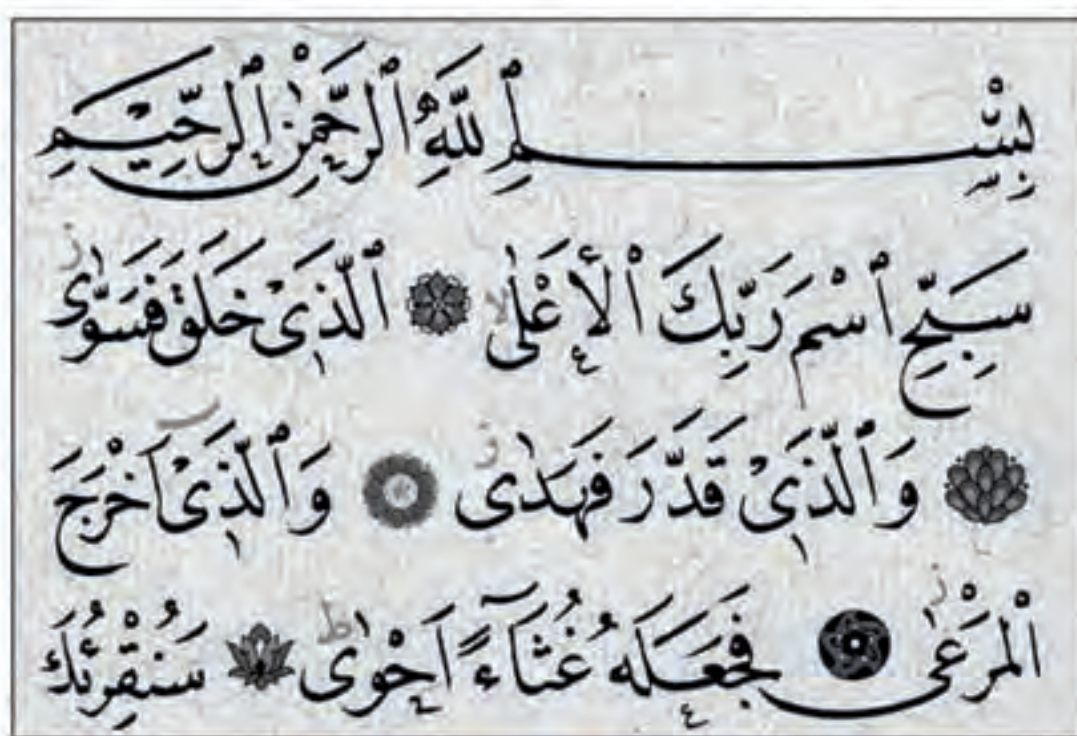 بِسْمِ اللّٰهِ الرَّحْمٰنِ الرَّحِيْمِ
سَبِّحِ اسْمَ رَبِّكَ الْأَعْلٰى ۝ الَّذِىْ خَلَقَ فَسَوّٰى
۝ وَالَّذِىْ قَدَّرَ فَهَدٰى ۝ وَالَّذِىْ اَخْرَجَ
الْمَرْعٰى ۝ فَجَعَلَهُ غُثَآءً اَحْوٰى ۝ سَنُقْرِئُكَ